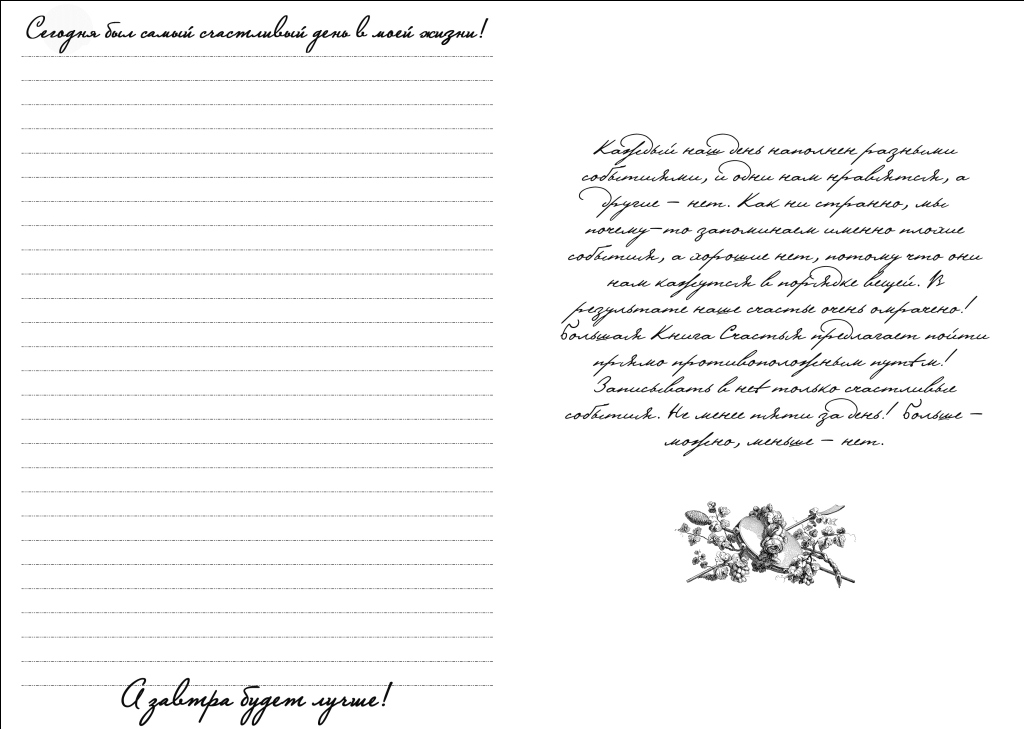 Сегодня был самый счастливый день в моей жизни!
А завтра будет лучше!
Каждый наш день наполнен разными
событиями, и одни нам нравятся, а
другие – нет. Как ни странно, мы
почему-то запоминаем именно плохие
события, а хорошие нет, потому что они
нам кажутся в порядке вещей. В
результате наше счастье очень омрачено!
Большая Книга Счастья предлагает пойти
прямо противоположным путём!
Записывать в неё только счастливые
события. Не менее пяти за день! Больше –
можно, меньше – нет.